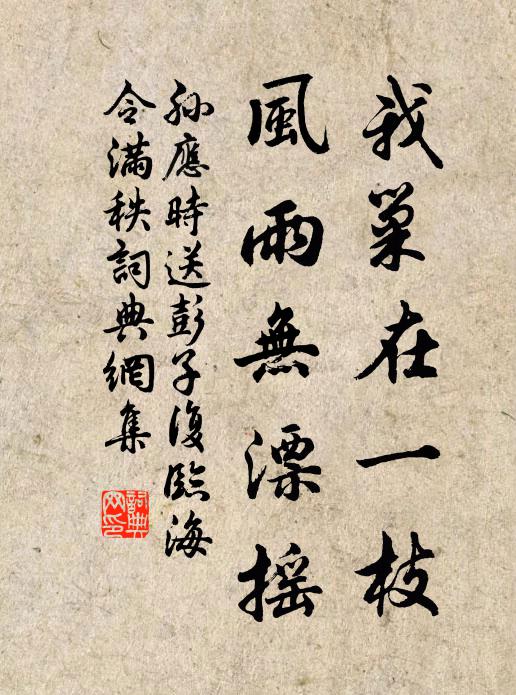 我巢在一枝
風雨無漂摇
孙應時送彭子復臨海
令滿秩詞典網集
詞典网印